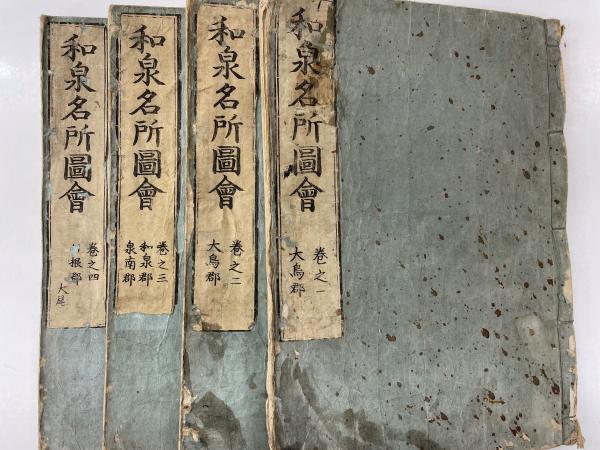 和泉名所圖會
卷之一
大鳥郡
和泉名所圖會
卷之二
大鳥郡
和泉名所圖會
卷之三
和泉郡
泉南郡
和泉名所圖會
卷之四
根郡
大尾